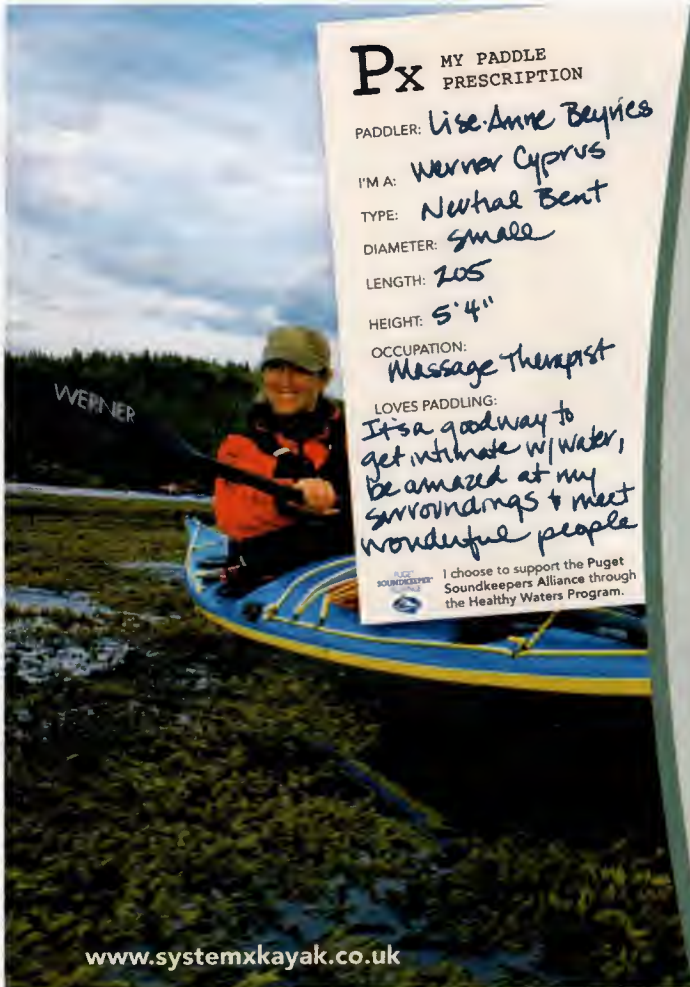 Px MY PADDLE
PRESCRIPTION
PADDLER: Lise-Anne Beyries
I'M A: Werner Cyprus
TYPE: Neutral Bent
DIAMETER: small
LENGTH: 205
HEIGHT: 5'4"
OCCUPATION:
Massage Therapist
LOVES PADDLING:
It's a good way to
get intimate w/ water,
be amazed at my
surroundings & meet
wonderful people
PUGET
SOUNDKEEPER
ALLIANCE
I choose to support the Puget
Soundkeepers Alliance through
the Healthy Waters Program.
WERNER
www.systemxkayak.co.uk